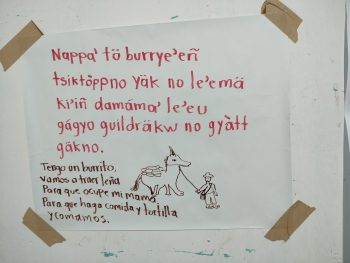 Nappa' tö burrye'eñ
tsiktöppno yäk no le'emä
ki'iñ damáma' le'eu
gágyo guildräkw no gyàtt
gákno.
Tengo un burrito,
vamos a traer leña
Para que ocupe mi mamá
Para que haga comida y tortilla
y comamos.